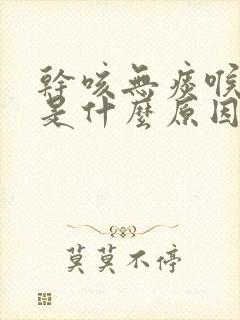 幹咳無痰喉
是什麼原因
莫莫不停